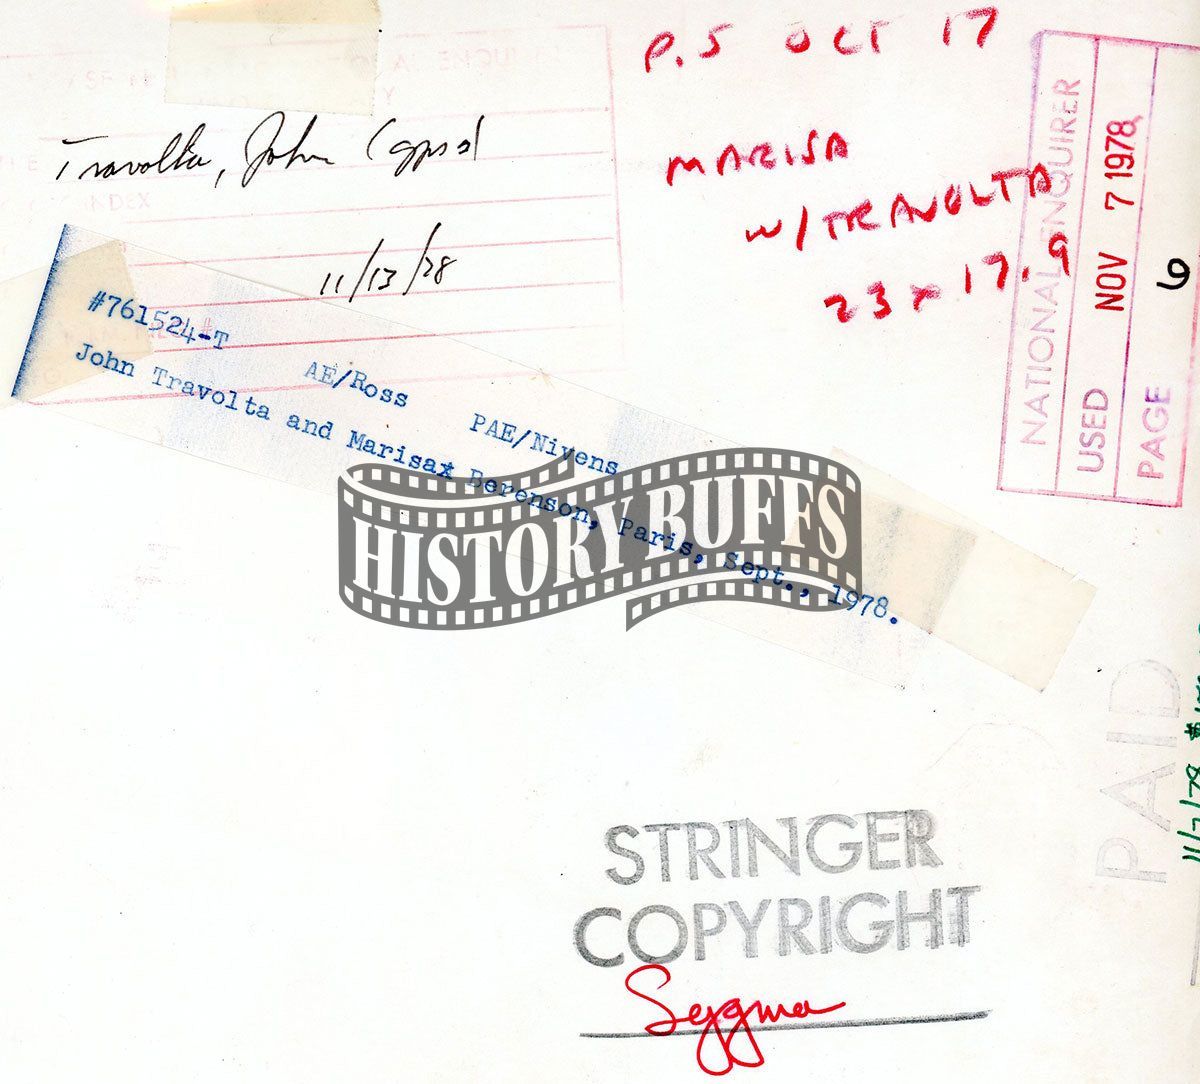 P.5 OCT 17
Travolta, John
MARISA
W/TRAVOLTA
23 x 17.9
11/13/78
INDEX
NATIONAL ENQUIRER
USED NOV 7 1978
PAGE 6
#761524-T AE/Ross PAE/Nivens
John Travolta and Marisax Berenson, Paris, Sept., 1978.
HISTORY BUFFS
PAID
11/7/78
STRINGER
COPYRIGHT
Sygma